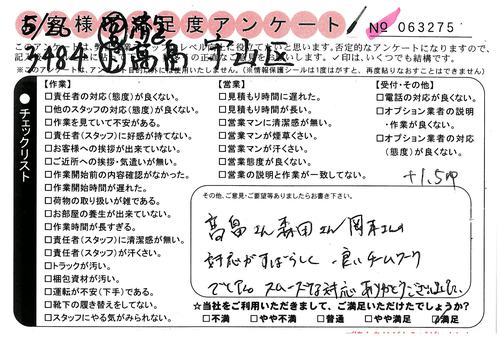 お客様満足度アンケート
No 063275
5/26 ②済
3484 高畠
【作業】
□責任者の対応(態度)が良くない。
□他のスタッフの対応(態度)が良くない。
□作業を見ていて不安がある。
□責任者(スタッフ)に好感が持てない。
□お客様への挨拶が出来ていない。
□ご近所への挨拶・気遣いが無い。
□作業開始前の内容確認がなかった。
□作業開始時間が遅れた。
□荷物の取り扱いが雑である。
□お部屋の養生が出来ていない。
□作業時間が長すぎる。
□責任者(スタッフ)に清潔感が無い。
□責任者(スタッフ)が汗くさい。
□トラックが汚い。
□梱包資材が汚い。
□運転が不安(下手)である。
□靴下の履き替えをしてない。
□スタッフにやる気がみられない。
チェックリスト
【営業】
□見積もり時間に遅れた。
□見積もり時間が長い。
□営業マンに清潔感が無い。
□営業マンが煙草くさい。
□営業マンが汗くさい。
□営業態度が良くない。
□営業の説明と作業が一致してない。
【受付・その他】
□電話の対応が良くない。
□オプション業者の説明
・作業が良くない。
□オプション業者の対応
(態度)が良くない。
+1.5
その他、ご意見・ご要望等ありましたらお書き下さい。
高畠さん 森田さん 岡本さん
対応がすばらしく 良いチームワーク
でした。スムーズな対応 ありがとうございました。
☆当社をご利用いただきまして、ご満足いただけたでしょうか?
□不満 □やや不満 □普通 □やや満足 ☑満足